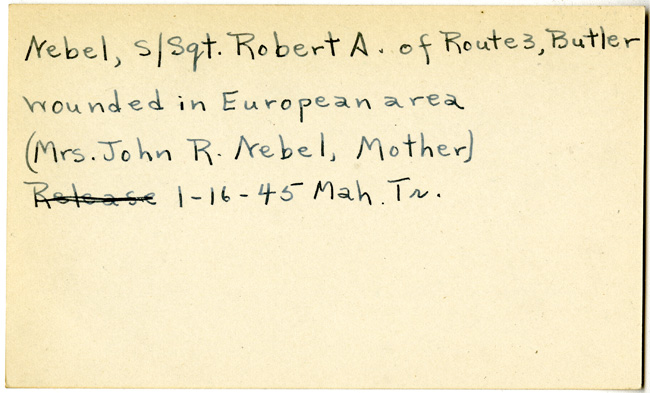 Nebel, S/Sgt. Robert A. of Route 3, Butler
wounded in European area
(Mrs. John R. Nebel, Mother)
Release 1-16-45 Mah. Tr.